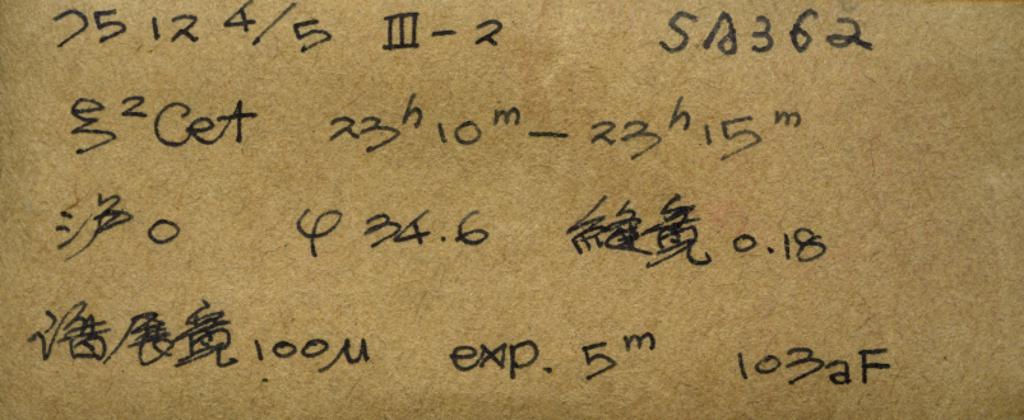 75 12 4/5 III-2 SA362
ξ²Cet 23ʰ10ᵐ-23ʰ15ᵐ
沪 0 φ 34.6 縫寬 0.18
谱展寬 100μ exp. 5ᵐ 103aF